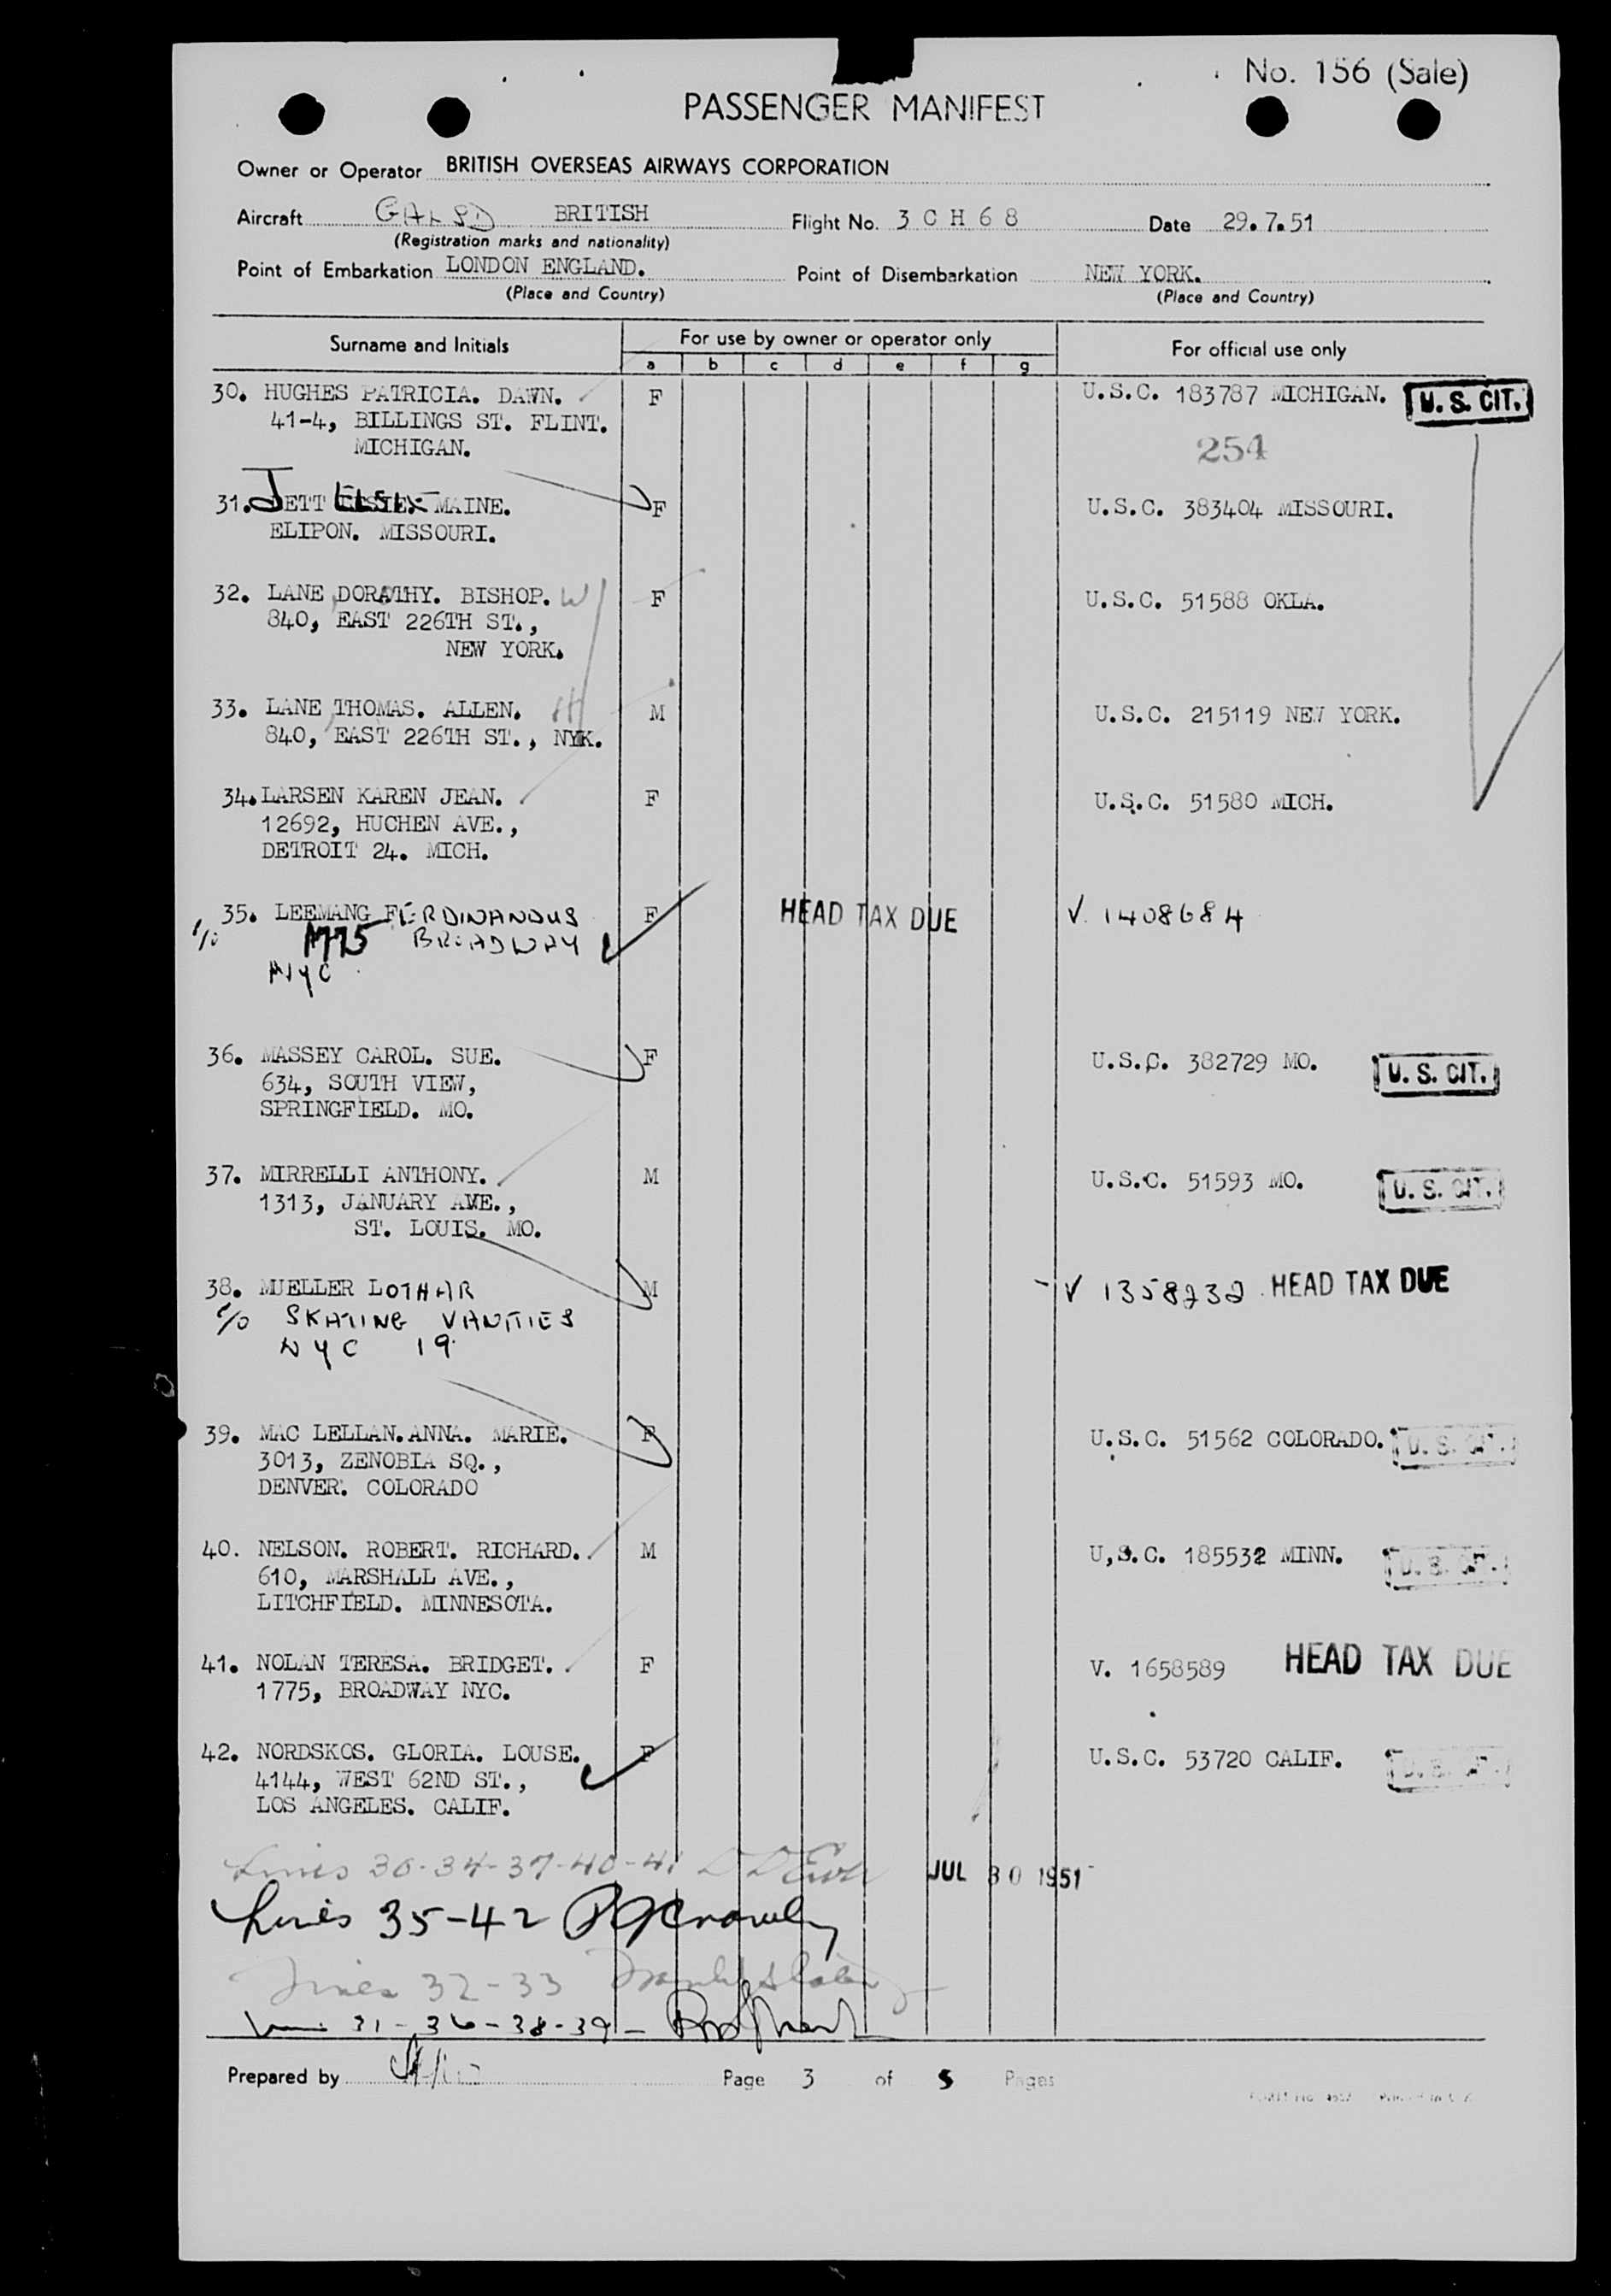 No. 156 (Sale)
PASSENGER MANIFEST
Owner or Operator BRITISH OVERSEAS AIRWAYS CORPORATION
Aircraft GALSD BRITISH Flight No. 3 C H 6 8 Date 29.7.51
(Registration marks and nationality)
Point of Embarkation LONDON ENGLAND. Point of Disembarkation NEW YORK.
(Place and Country) (Place and Country)
Surname and Initials For use by owner or operator only For official use only
a b c d e f g
30. HUGHES PATRICIA. DAWN. F U.S.C. 183787 MICHIGAN. U. S. CIT.
41-4, BILLINGS ST. FLINT.
MICHIGAN. 254
31. JETT ELSIE MAINE. F U.S.C. 383404 MISSOURI.
ELIPON. MISSOURI.
32. LANE DORATHY. BISHOP. W F U.S.C. 51588 OKLA.
840, EAST 226TH ST.,
NEW YORK.
33. LANE THOMAS. ALLEN. H M U.S.C. 215119 NEW YORK.
840, EAST 226TH ST., NYK.
34. LARSEN KAREN JEAN. F U.S.C. 51580 MICH.
12692, HUCHEN AVE.,
DETROIT 24. MICH.
35. LEEMANG FERDINANDUS F HEAD TAX DUE V. 1408684
c/o 1775 BROADWAY
NYC
36. MASSEY CAROL. SUE. F U.S.C. 382729 MO. U. S. CIT.
634, SOUTH VIEW,
SPRINGFIELD. MO.
37. MIRRELLI ANTHONY. M U.S.C. 51593 MO. U. S. CIT.
1313, JANUARY AVE.,
ST. LOUIS. MO.
38. MUELLER LOTHAR M V 1358232 HEAD TAX DUE
c/o SKATING VANITIES
NYC 19.
39. MAC LELLAN. ANNA. MARIE. F U.S.C. 51562 COLORADO. U. S. CIT.
3013, ZENOBIA SQ.,
DENVER. COLORADO
40. NELSON. ROBERT. RICHARD. M U,S.C. 185532 MINN. U. S. CIT.
610, MARSHALL AVE.,
LITCHFIELD. MINNESOTA.
41. NOLAN TERESA. BRIDGET. F V. 1658589 HEAD TAX DUE
1775, BROADWAY NYC.
42. NORDSKOS. GLORIA. LOUSE. F U.S.C. 53720 CALIF. U. S. CIT.
4144, WEST 62ND ST.,
LOS ANGELES. CALIF.
Lines 30-34-37-40-41 JUL 30 1951
Lines 35-42
Lines 32-33
31-36-38-39-
Prepared by Page 3 of 5 Pages